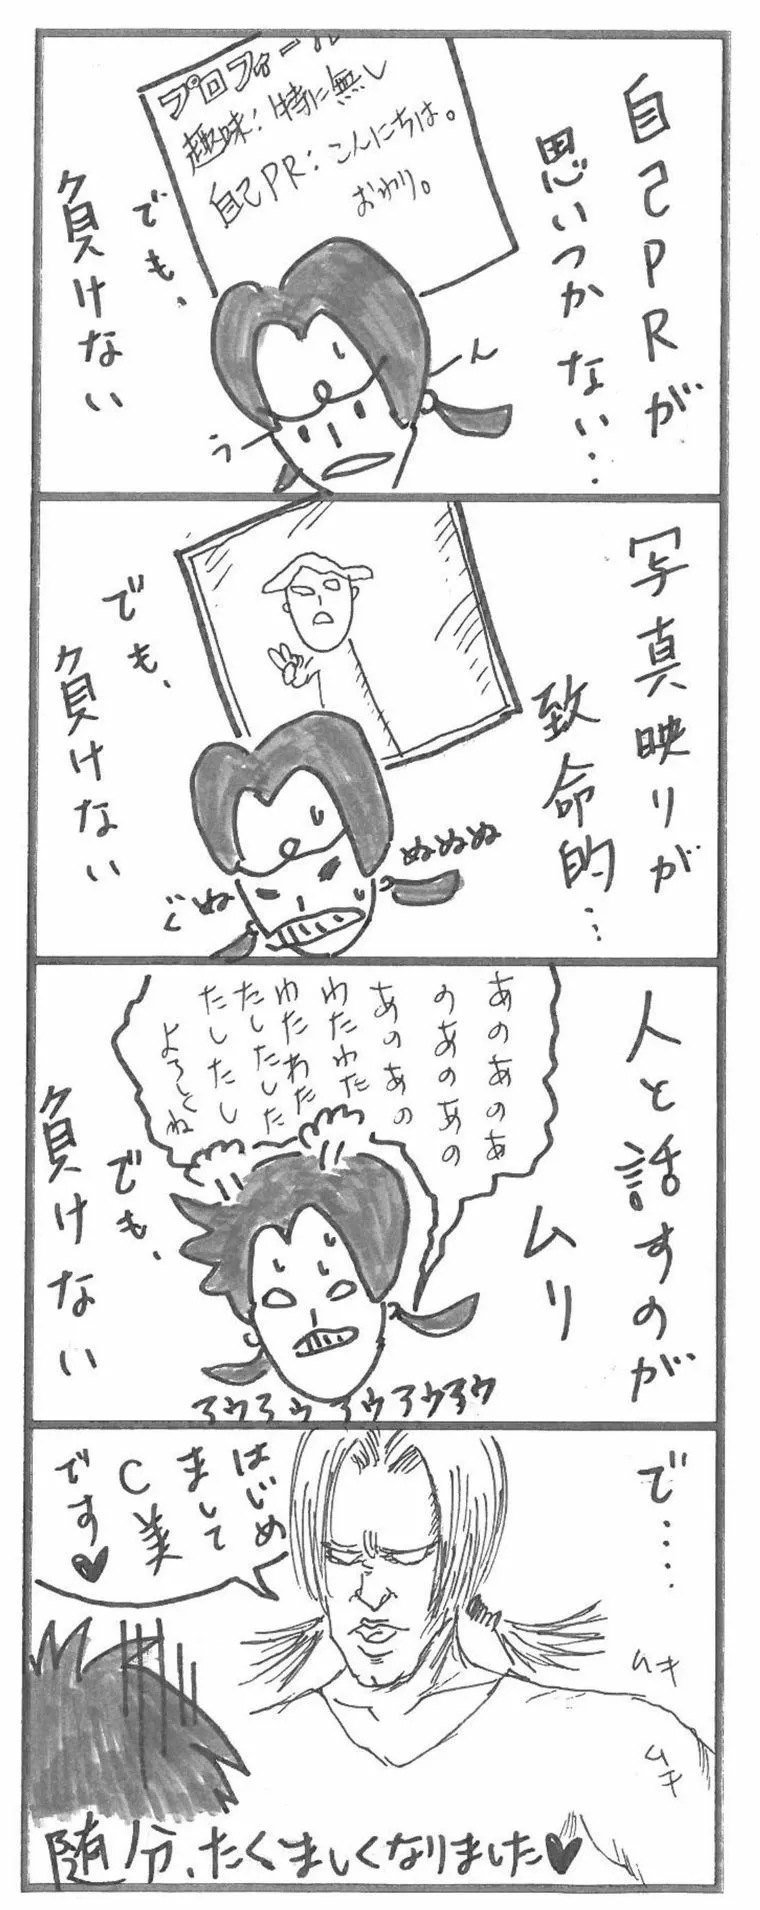 自己PRが
思いつかない…
プロフィール
趣味:特に無し
自己PR:こんにちは。
おわり。
でも、
負けない
う
ん
写真映りが
致命的…
でも、
負けない
ぬぬぬ
ぐぬ
人と話すのが
ムリ
あのあのあ
のあのあの
あのあの
わたわた
わたわた
たしたした
たしたし
よろしくね
でも、
負けない
アウアウアウアウアウ
で….
はじめ
まして
C美
です♥
ムキ
ムキ
随分、たくましくなりました♥